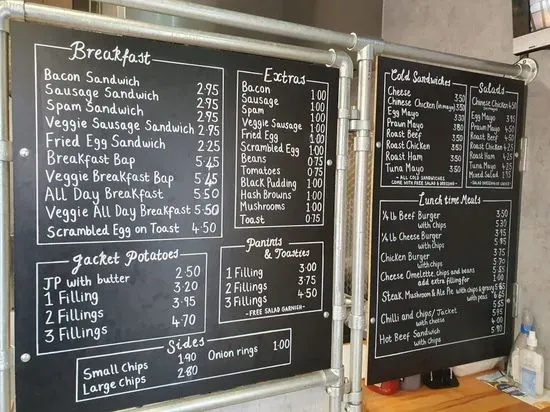 Breakfast
Bacon Sandwich 2.95
Sausage Sandwich 2.95
Spam Sandwich 2.95
Veggie Sausage Sandwich 2.95
Fried Egg Sandwich 2.25
Breakfast Bap 5.45
Veggie Breakfast Bap 5.45
All Day Breakfast 5.50
Veggie All Day Breakfast 5.50
Scrambled Egg on Toast 4.50
Extras
Bacon 1.00
Sausage 1.00
Spam 1.00
Veggie Sausage 1.00
Fried Egg 1.00
Scrambled Egg 1.00
Beans 0.75
Tomatoes 0.75
Black Pudding 1.00
Hash Browns 1.00
Mushrooms 1.00
Toast 0.75
Jacket Potatoes
JP with butter 2.50
1 Filling 3.20
2 Fillings 3.95
3 Fillings 4.70
Paninis
& Toasties
1 Filling 3.00
2 Fillings 3.75
3 Fillings 4.50
- FREE SALAD GARNISH -
Sides
Small Chips 1.90
Large Chips 2.80
Onion rings 1.00
Cold Sandwiches
Cheese 3.50
Chinese Chicken (in mayo) 3.50
Egg Mayo
Prawn Mayo 3.80
Roast Beef
Roast Chicken 3.50
Roast Ham
Tuna Mayo
- ALL COLD SANDWICHES
COME WITH FREE SALAD & DRESSING -
Salads
Chinese Chicken 4.50
Egg Mayo 3.95
Prawn Mayo 4.50
Roast Beef
Roast Chicken 4.25
Roast Ham
Tuna Mayo
Mixed Salad
Lunch time Meals
1/4 lb Beef Burger 3.50
with chips 5.30
1/4 lb Cheese Burger
with chips
Chicken Burger
with chips
Cheese Omelette, chips and beans
add extra filling for
Steak, Mushroom & Ale Pie with chips & gravy
with peas
Chilli and chips/Jacket 5.65
with cheese
Hot Beef Sandwich 4.00
with chips 5.90